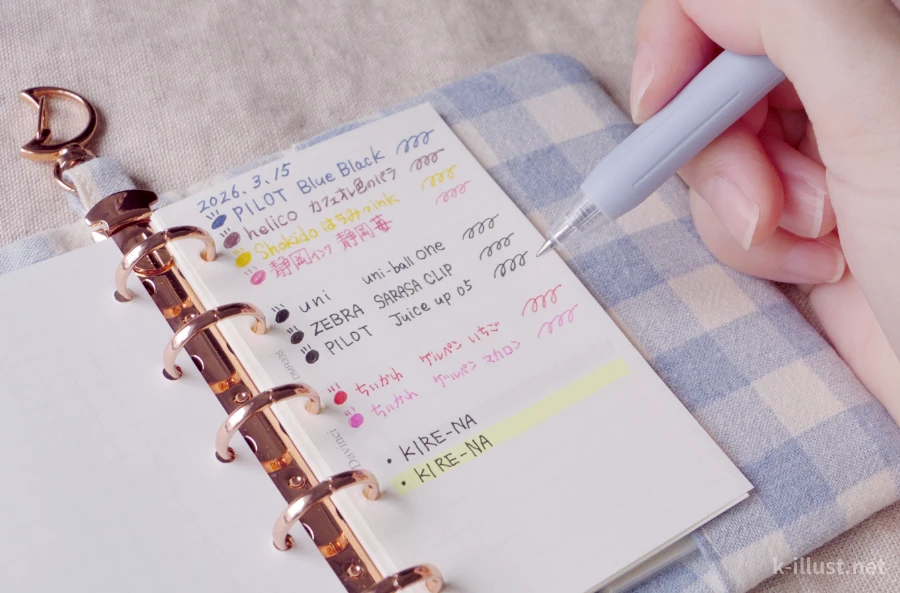 2026. 3. 15
PILOT Blue Black
helico カフェオレ色のバラ
Shokido はちみつink
静岡インク 静岡苺
uni uni-ball one
ZEBRA SARASA CLIP
PILOT Juice up 05
ちいかわ ゲルペン いちご
ちいかわ ゲルペン マカロン
• KIRE-NA
• KIRE-NA
Davinci
k-illust.net